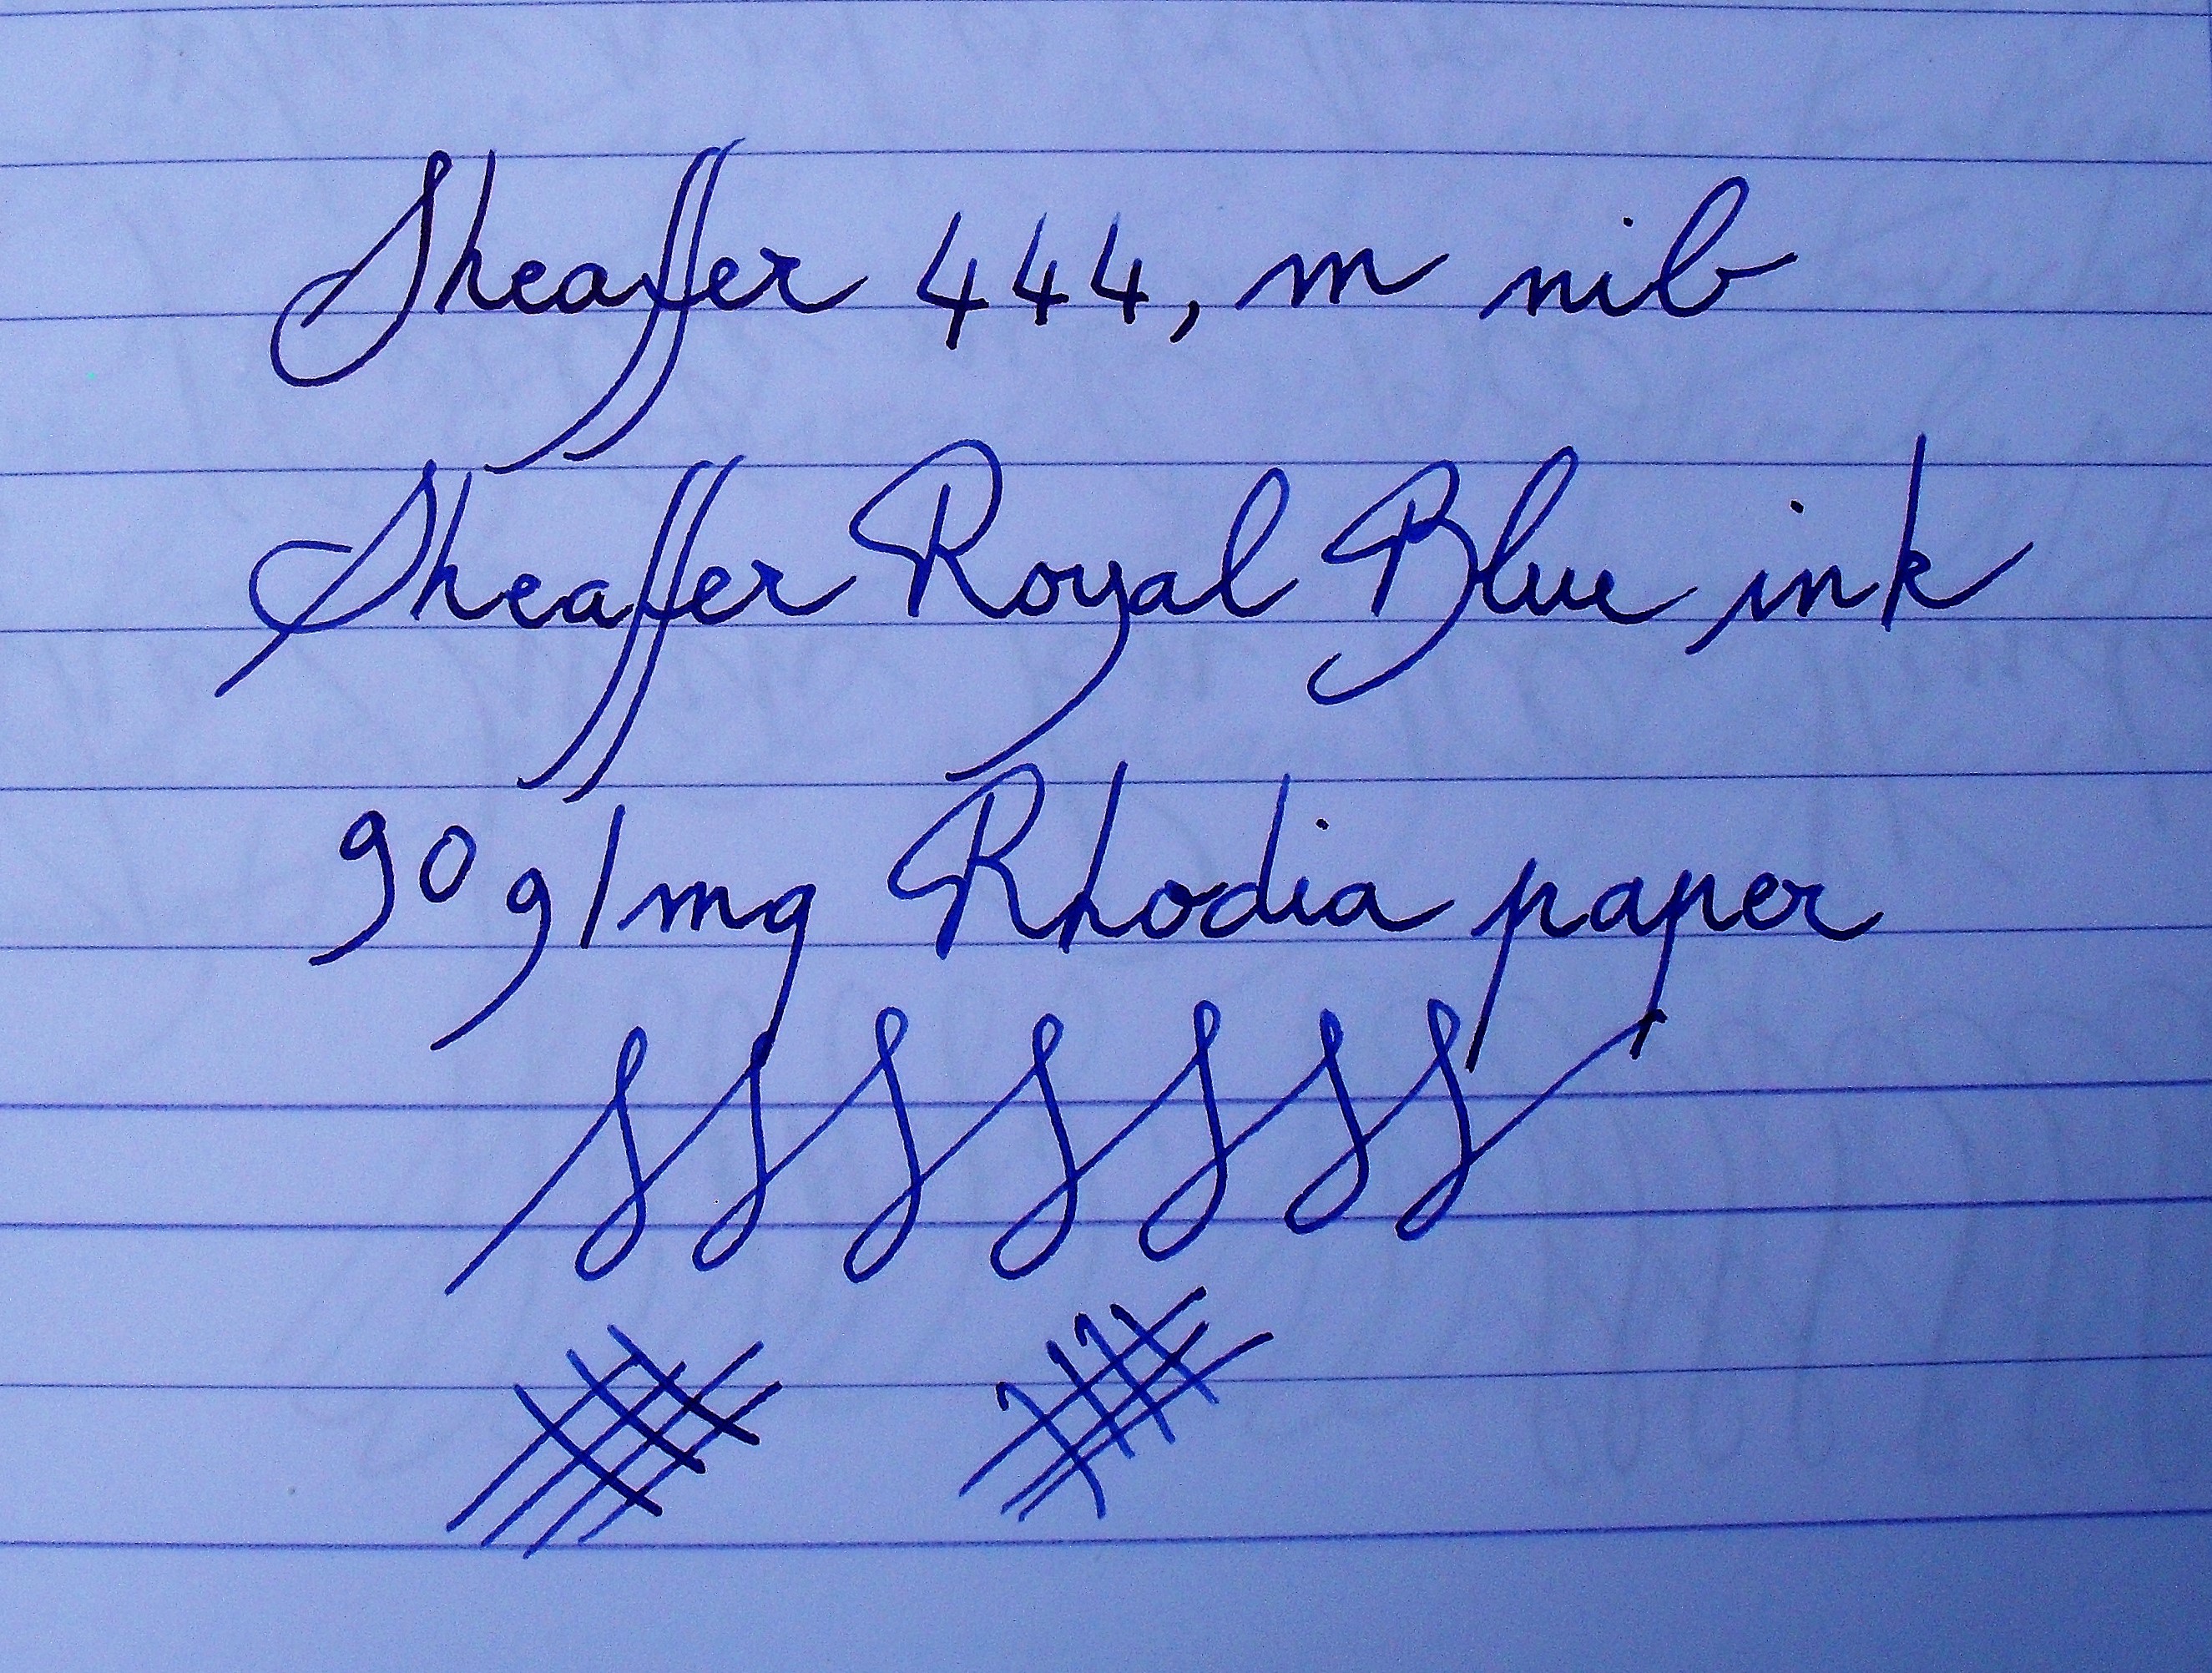 Sheaffer 444, m nib
Sheaffer Royal Blue ink
90 g/mg Rhodia paper